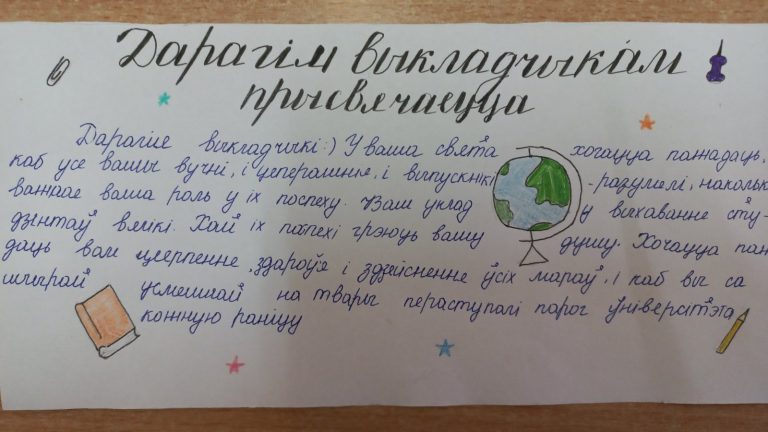 Дарагім выкладчыкам
прысвячаецца
Дарагія выкладчыкі:) У ваша свята хочацца пажадаць,
каб усе вашы вучні, і цеперашнія, і выпускнікі - разумелі, наколькі
важная ваша роль у іх поспеху. Ваш уклад у выхаванне сту-
дэнтаў вялікі. Хай іх поспехі грэюць вашу душу. Хочацца па
даць вам цярпення, здароўя і здзяйснення ўсіх мараў, і каб вы са
шчырай усмешкай на твары пераступалі парог ўніверсітэта
кожную раніцу